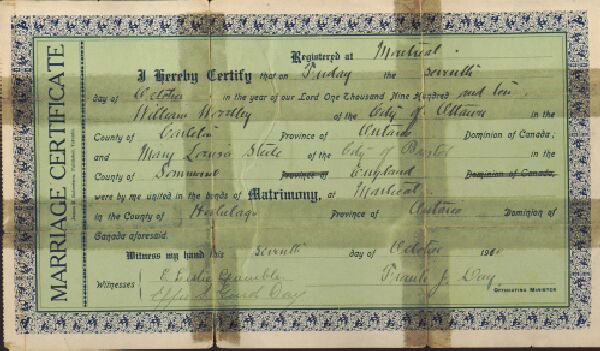 MARRIAGE CERTIFICATE
Registered at Montreal
I Hereby Certify that on Friday the seventh
day of October in the year of our Lord One Thousand Nine Hundred and ten
William Worsley of the City of Ottawa in the
County of Carleton Province of Ontario Dominion of Canada;
and Mary Louisa Steele of the City of Bristol in the
County of Province of England Dominion of Canada,
were by me united in the bonds of Matrimony, at Montreal
in the County of Hochelaga Province of Ontario Dominion of
Canada aforesaid.
Witness my hand this Seventh day of October 190
Witnesses
Effie Day
Frank J. Day
OFFICIATING MINISTER